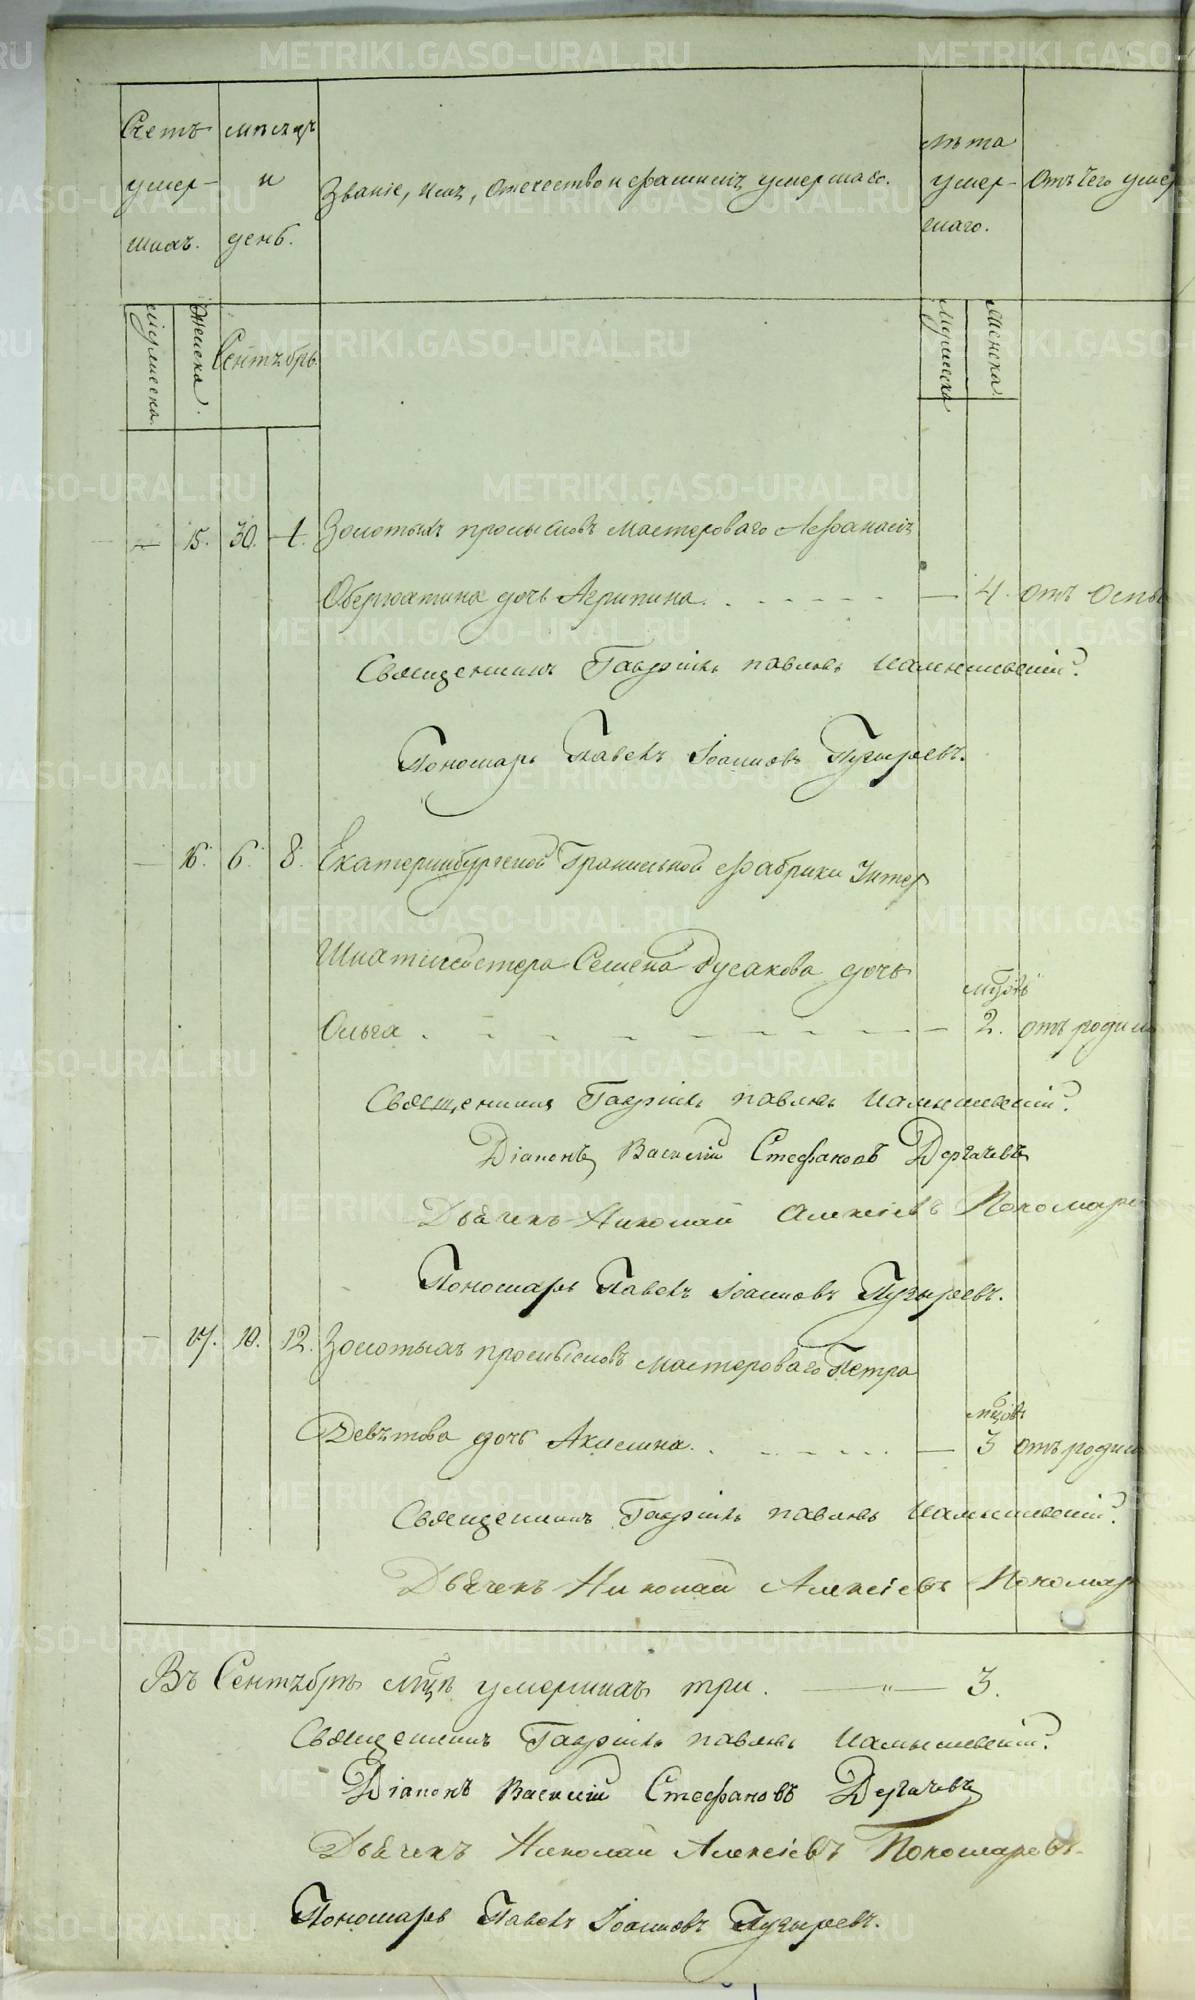 METRIKI.GASO-URAL.RU
Счетъ умер-шихъ.
мѣсяцъ и день.
Званіе, имя, отечество и фамилія умершаго.
лѣта умер-шаго.
Отъ чего умер
мужеска.
женска.
Сентябрь.
мужеска
женска
— 15. 30. 1. Золотыхъ промысловъ мастероваго Афанасія
Обертюхтина дочь Агрипина. — 4. отъ оспы
Священникъ Гавріилъ Павловъ
Пономарь Павелъ Іоанновъ Пузыревъ.
— 16. 6. 8. Екатеринбургской Гранильной фабрики Унтер
Шихтмейстера Семена Русакова дочь
мцовъ
Ольга. — 2. отъ родим
Священникъ Гавріилъ Павловъ
Діаконъ Василій Стефановъ Дергачевъ
Дьячекъ Николай Алексіевъ Пономаре
Пономарь Павелъ Іоанновъ Пузыревъ.
— 17. 10. 12. Золотыхъ промысловъ мастероваго Петра
мцовъ
Девятова дочь Акилина. — 3 отъ родим
Священникъ Гавріилъ Павловъ
Дьячекъ Николай Алексіевъ Пономар
Въ Сентябрѣ мцѣ умершихъ три. —"— 3.
Священникъ Гавріилъ Павловъ
Діаконъ Василій Стефановъ Дергачевъ
Дьячекъ Николай Алексіевъ Пономаревъ.
Пономарь Павелъ Іоанновъ Пузыревъ.